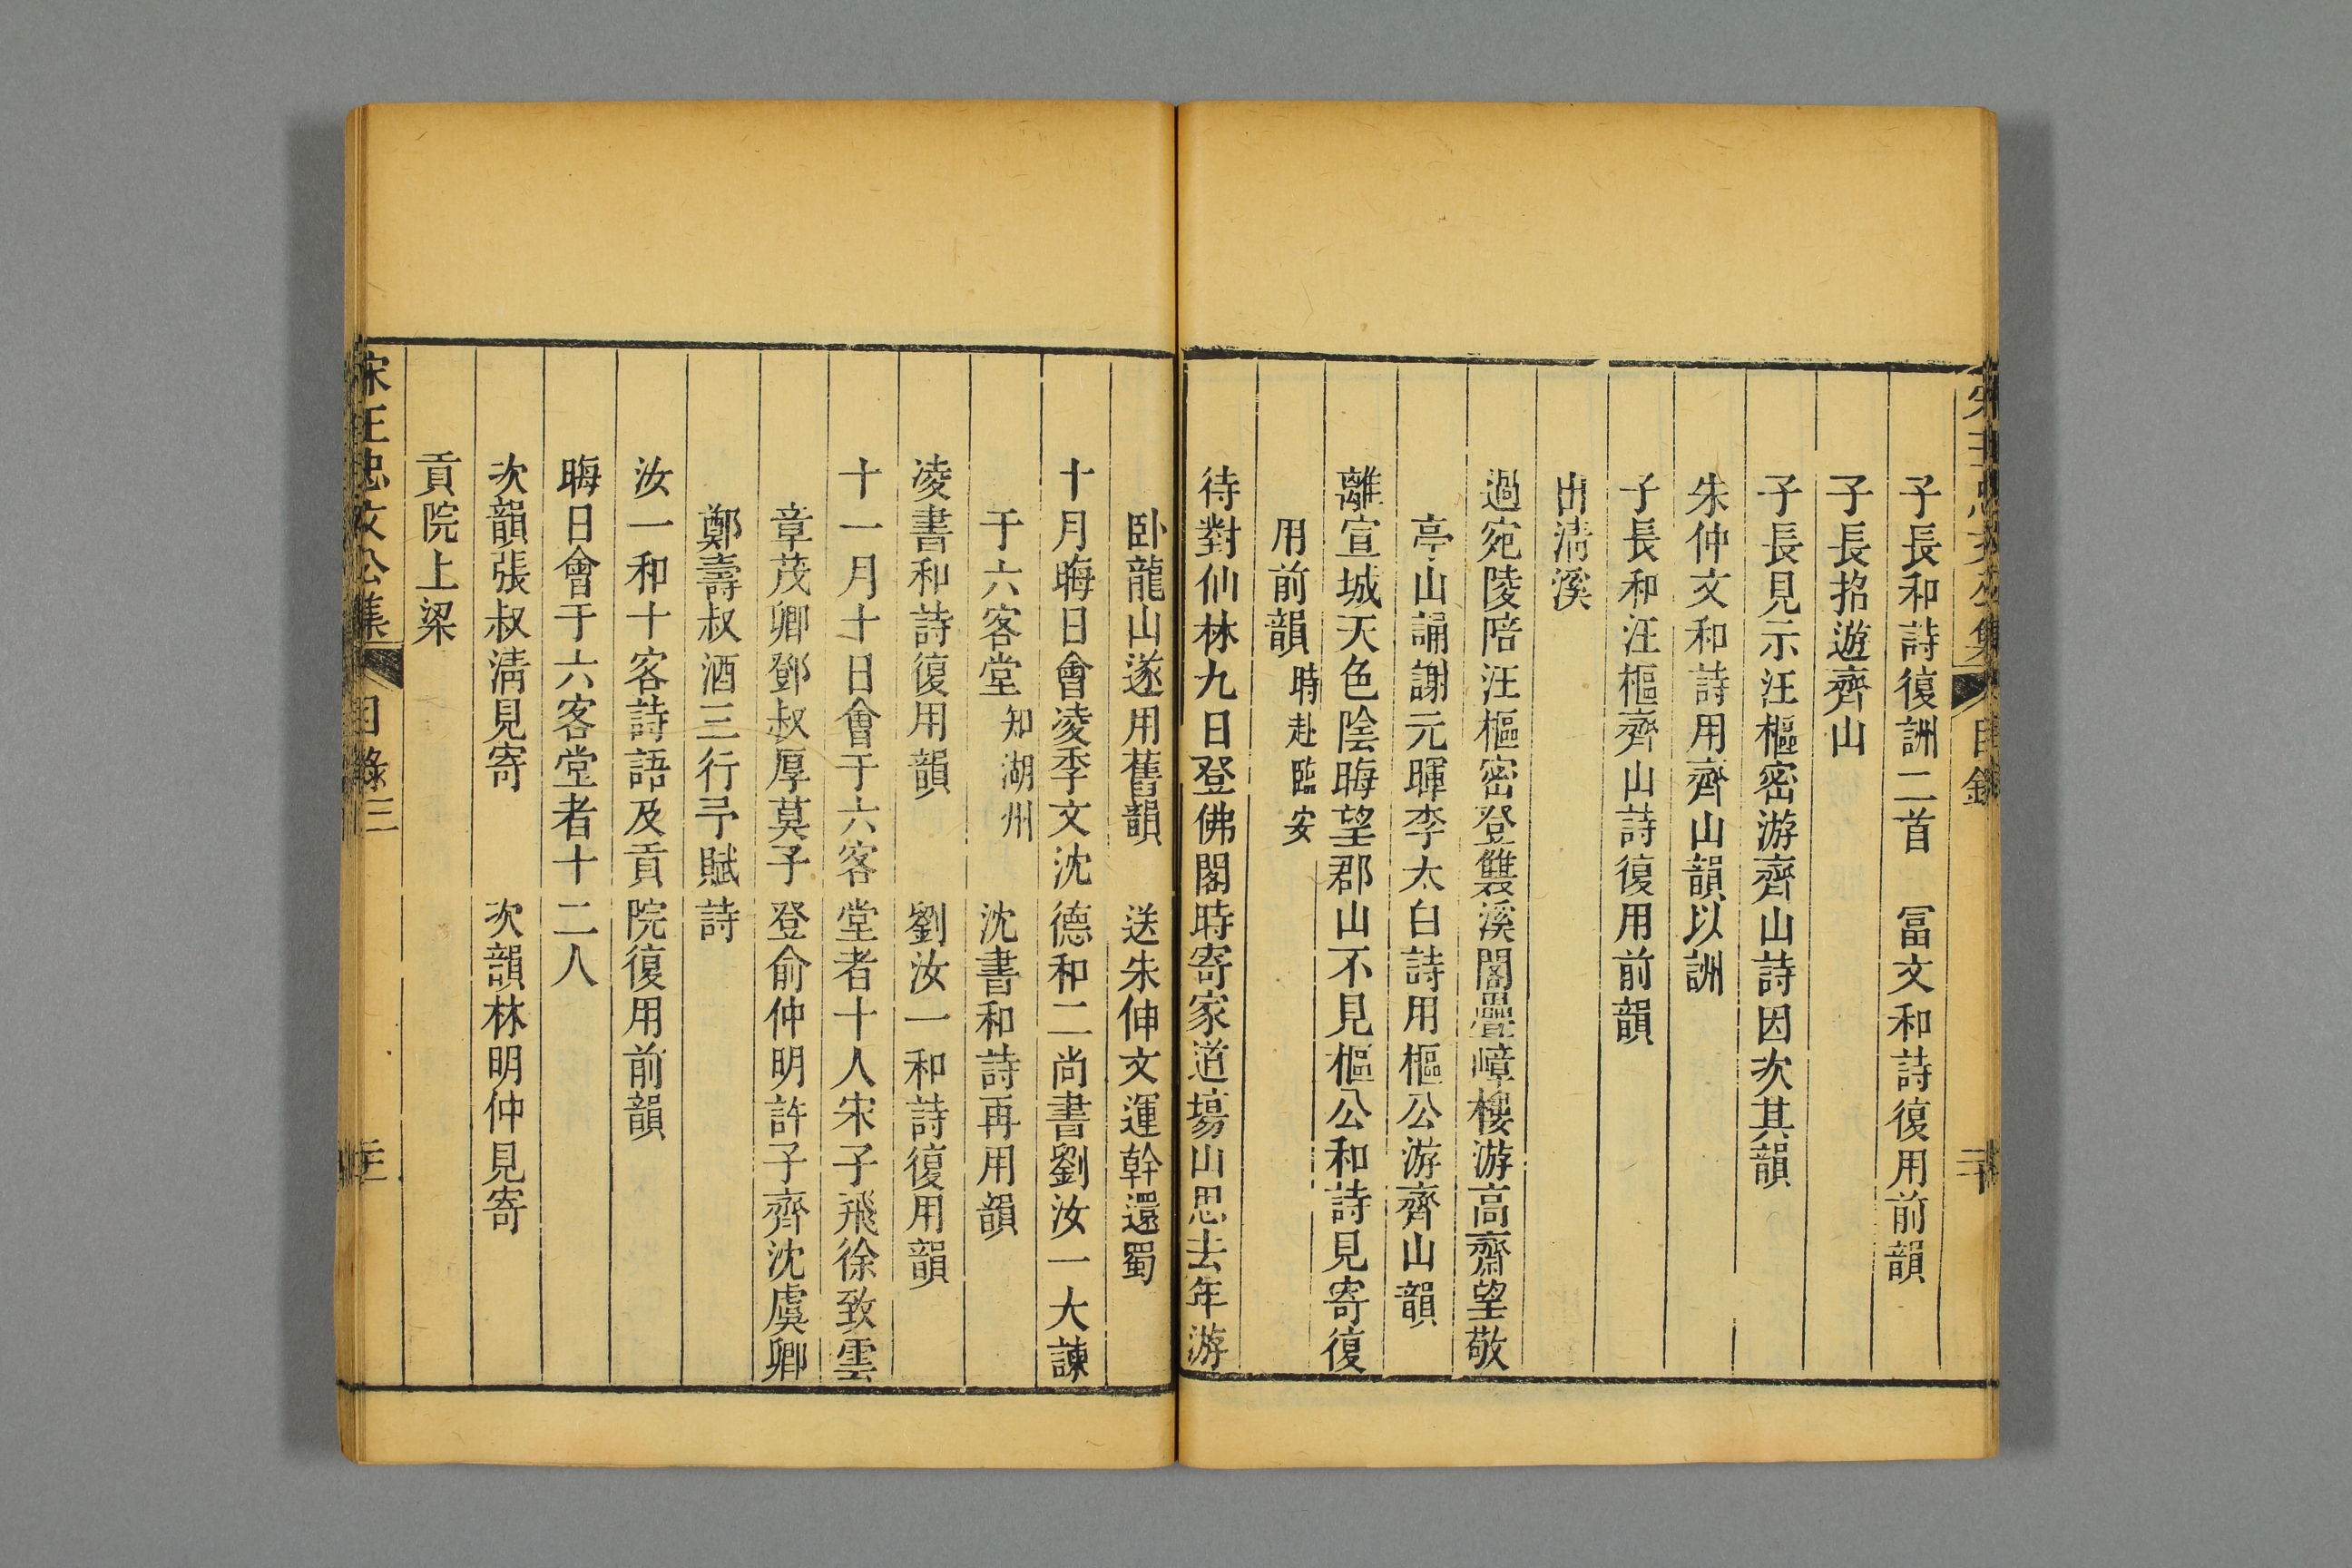 子長和詩復詶二首　冨文和詩復用前韻
子長招遊齊山
子長見示汪樞密游齊山詩因次其韻
朱仲文和詩用齊山韻以詶
子長和汪樞齊山詩復用前韻
出清溪
過宛陵陪汪樞密登雙溪閣疊嶂樓游高齋望敬
亭山誦謝元暉李太白詩用樞公游齊山韻
離宣城天色陰晦望郡山不見樞公和詩見寄復
用前韻時赴臨安
待對仙林九日登佛閣時寄家道塲山思去年游
卧龍山遂用舊韻　送朱仲文運幹還蜀
十月晦日會凌季文沈德和二尚書劉汝一大諫
于六客堂知湖州　沈書和詩再用韻
凌書和詩復用韻　劉汝一和詩復用韻
十一月十日會于六客堂者十人宋子飛徐致雲
章茂卿鄧叔厚莫子登俞仲明許子齊沈虞卿
鄭壽叔酒三行予賦詩
汝一和十客詩語及貢院復用前韻
晦日會于六客堂者十二人
次韻張叔淸見寄　次韻林明仲見寄
貢院上梁
宋王忠文公集　目錄三